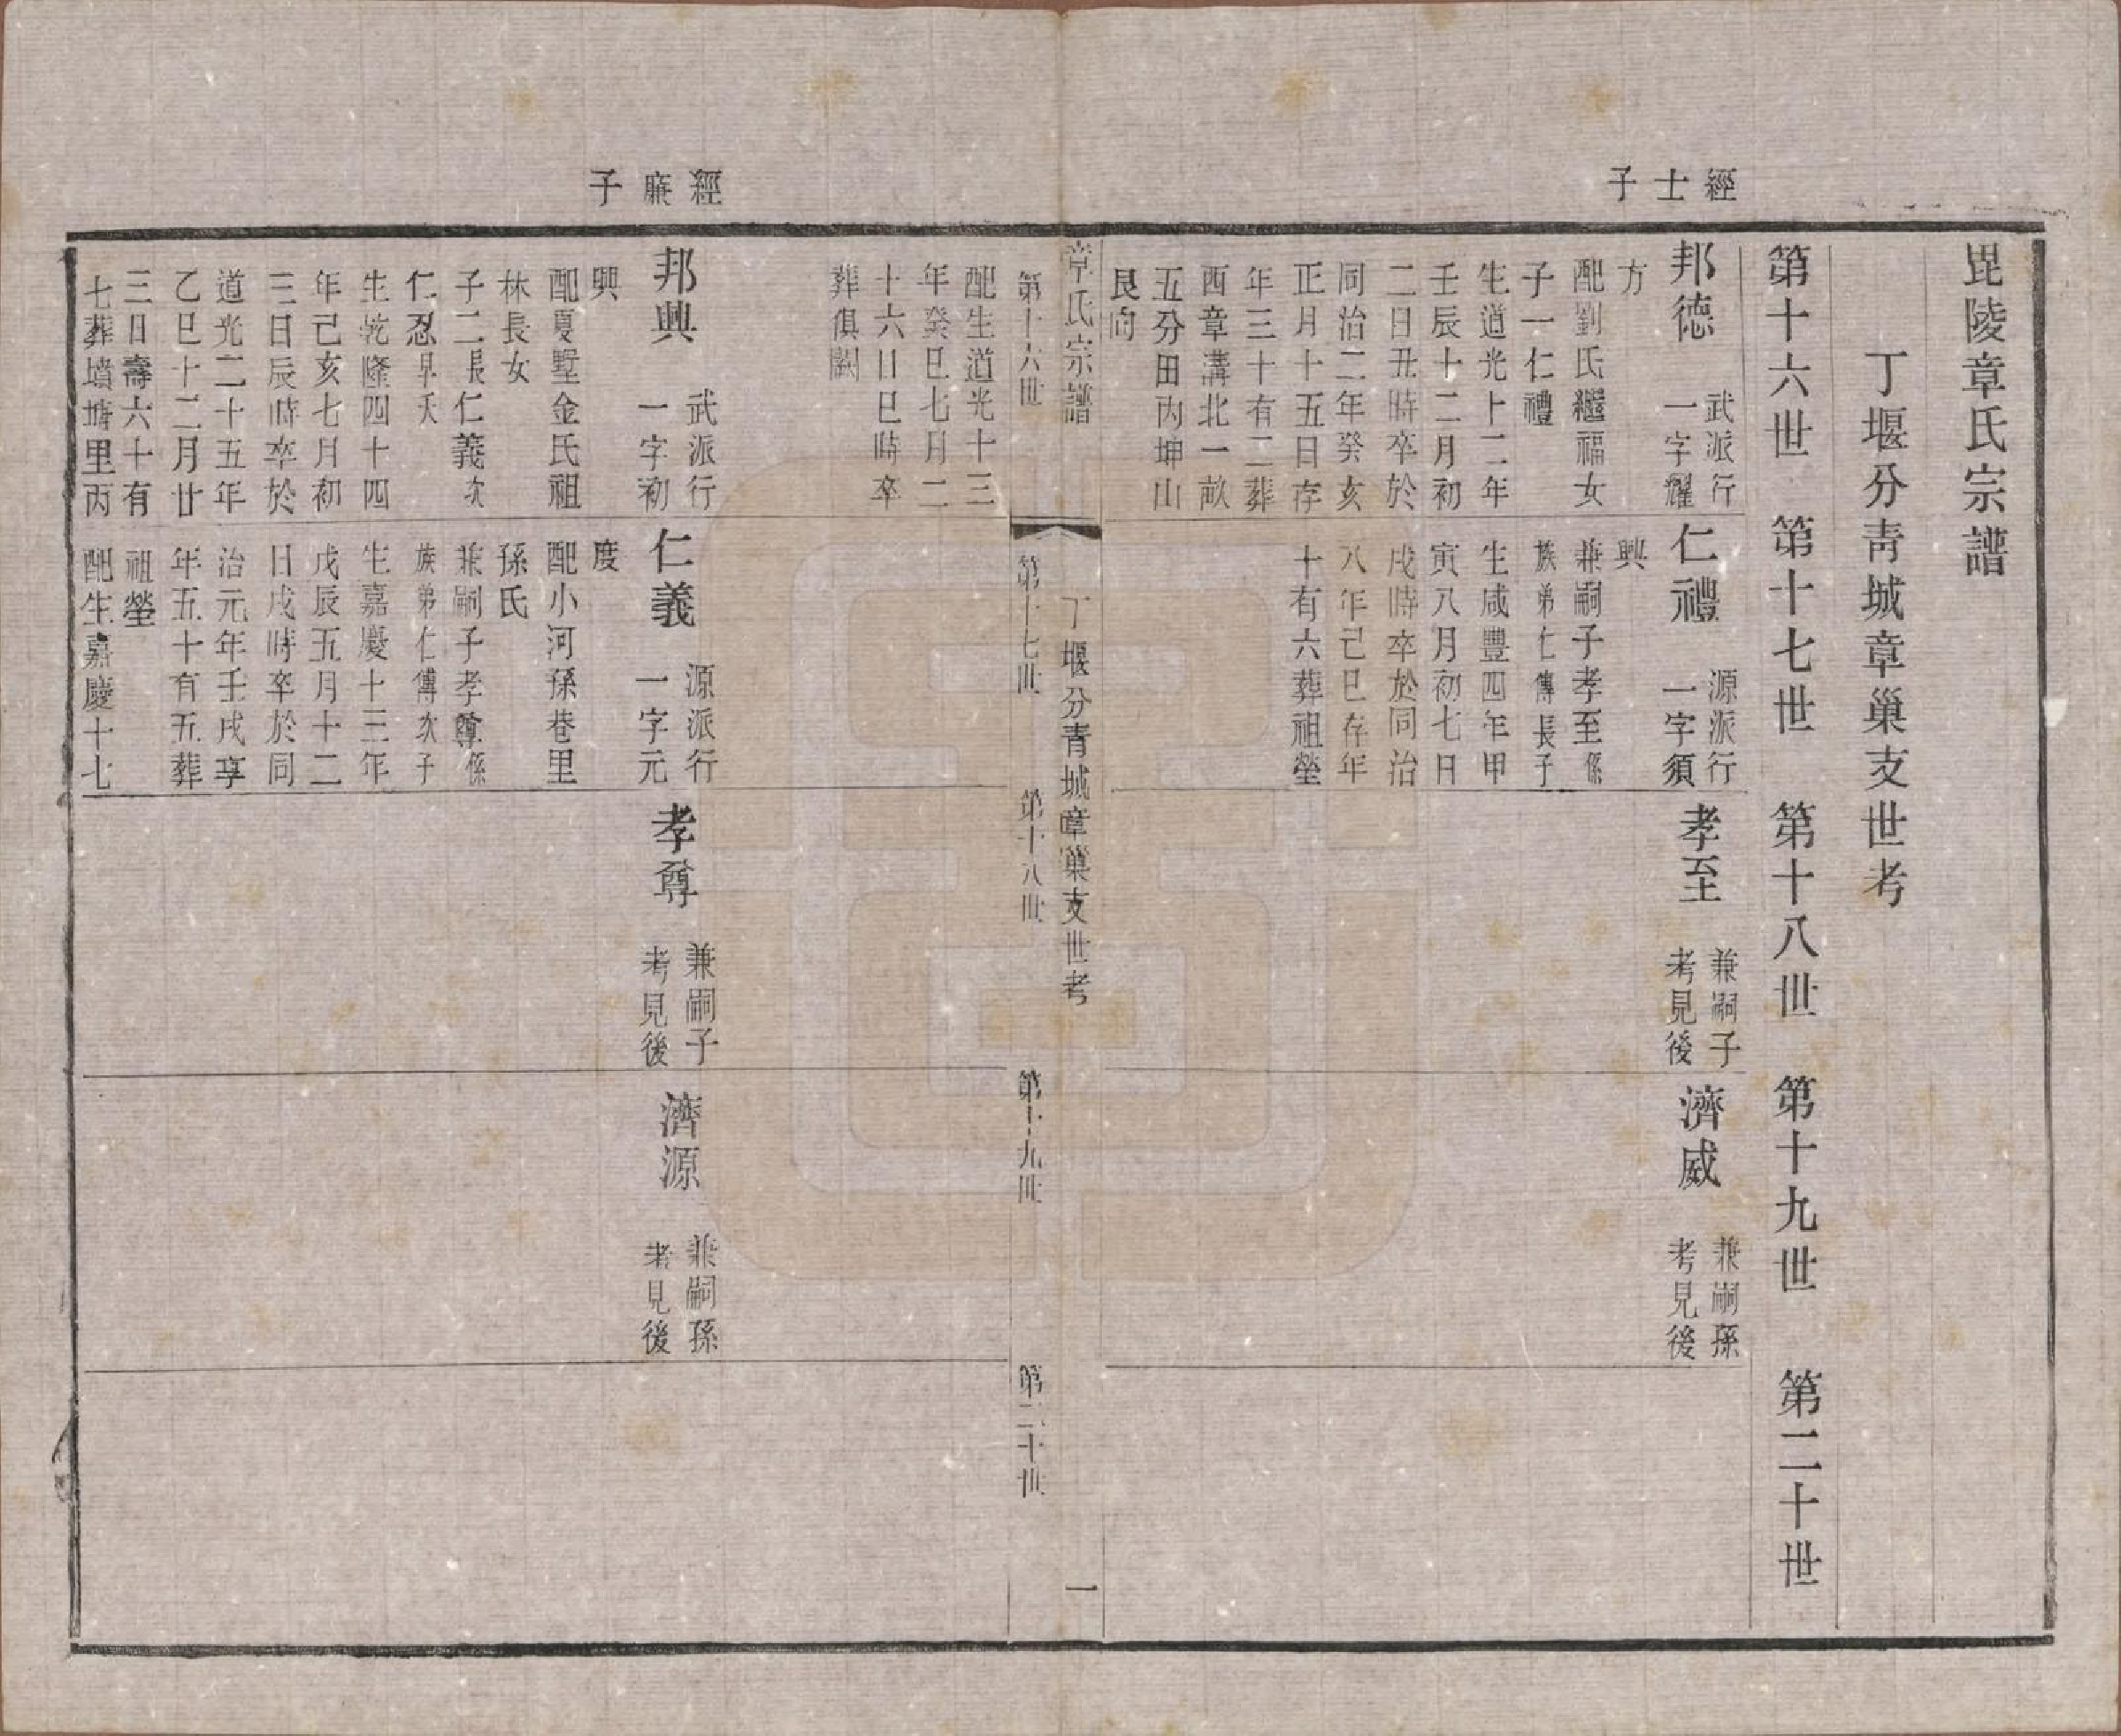 毘陵章氏宗譜
丁堰分青城章巢支世考
第十六世
第十七世
第十八世
第十九世
第二十世
經士子
邦德
武派行
一字耀
方
配劉氏繼福女
子一仁禮
生道光十二年
壬辰十二月初
二日丑時卒於
同治二年癸亥
正月十五日存
年三十有二葬
西章溝北一畝
五分田丙坤山
艮向
配生道光十三
年癸巳七月二
十六日巳時卒
葬俱闕
仁禮
源派行
一字須
興
兼嗣子孝至係
族弟仁傳長子
生咸豐四年甲
寅八月初七日
戌時卒於同治
八年己巳存年
十有六葬祖塋
孝至
兼嗣子
考見後
濟威
兼嗣孫
考見後
章氏宗譜
丁堰分青城章巢支世考
一
第十六世
第十七世
第十八世
第十九世
第二十世
經廉子
邦興
武派行
一字初
興
配夏墅金氏祖
林長女
子二長仁義次
仁忍早夭
生乾隆四十四
年己亥七月初
三日辰時卒於
道光二十五年
乙巳十二月廿
三日壽六十有
七葬墳塘里丙
仁義
源派行
一字元
度
配小河孫巷里
孫氏
兼嗣子孝尊係
族弟仁傳次子
生嘉慶十三年
戊辰五月十二
日戌時卒於同
治元年壬戌享
年五十有五葬
祖塋
配生嘉慶十七
孝尊
兼嗣子
考見後
濟源
兼嗣孫
考見後